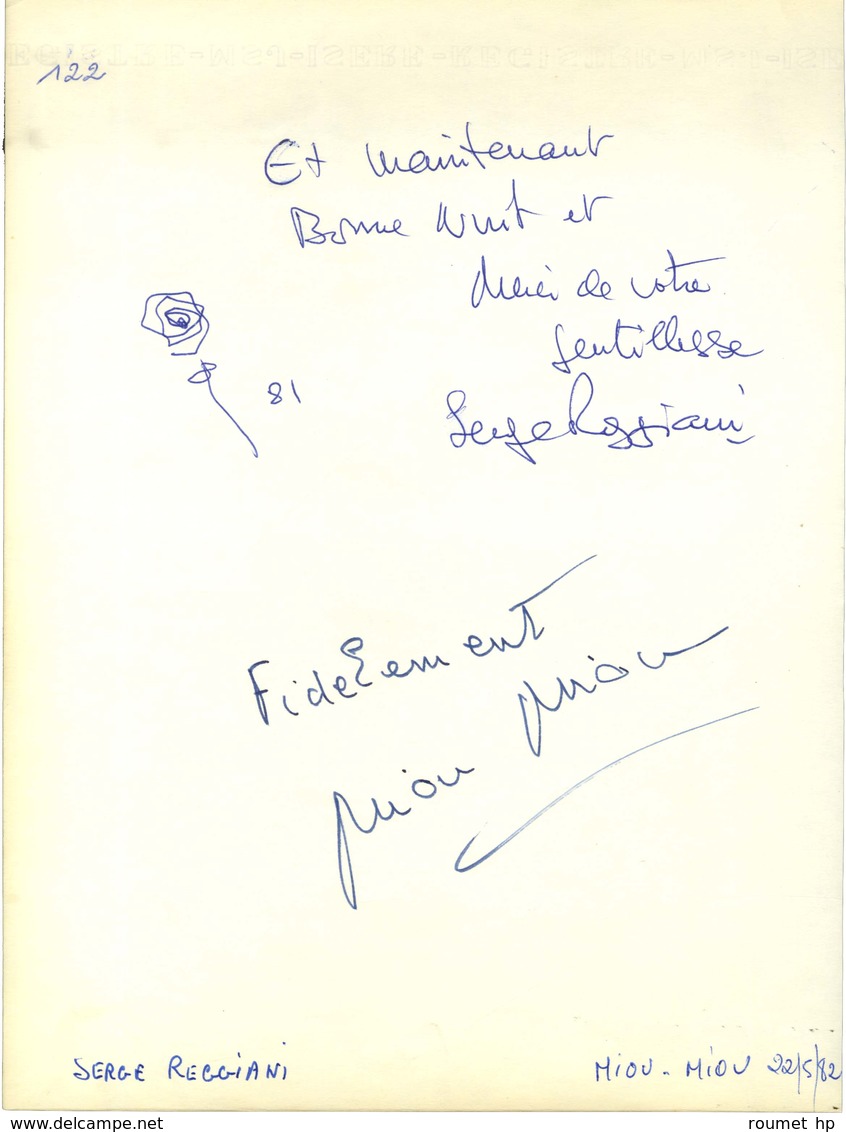 122
Et maintenant
Bonne Nuit et
Merci de votre
gentillesse
Serge Reggiani
81
Fidèlement
Miou Miou
SERGE REGGIANI
MIOU - MIOU 22/5/82
www.delcampe.net
roumet hp